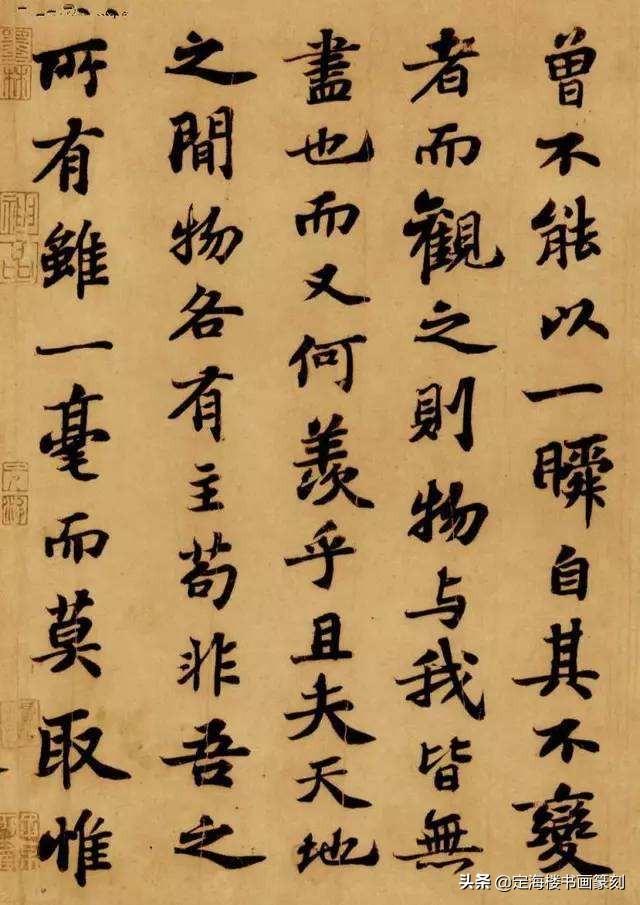 曾不能以一瞬自其不變
者而觀之則物與我皆無
盡也而又何羨乎且夫天地
之間物各有主苟非吾之
所有雖一毫而莫取惟
头条 @定海楼书画篆刻